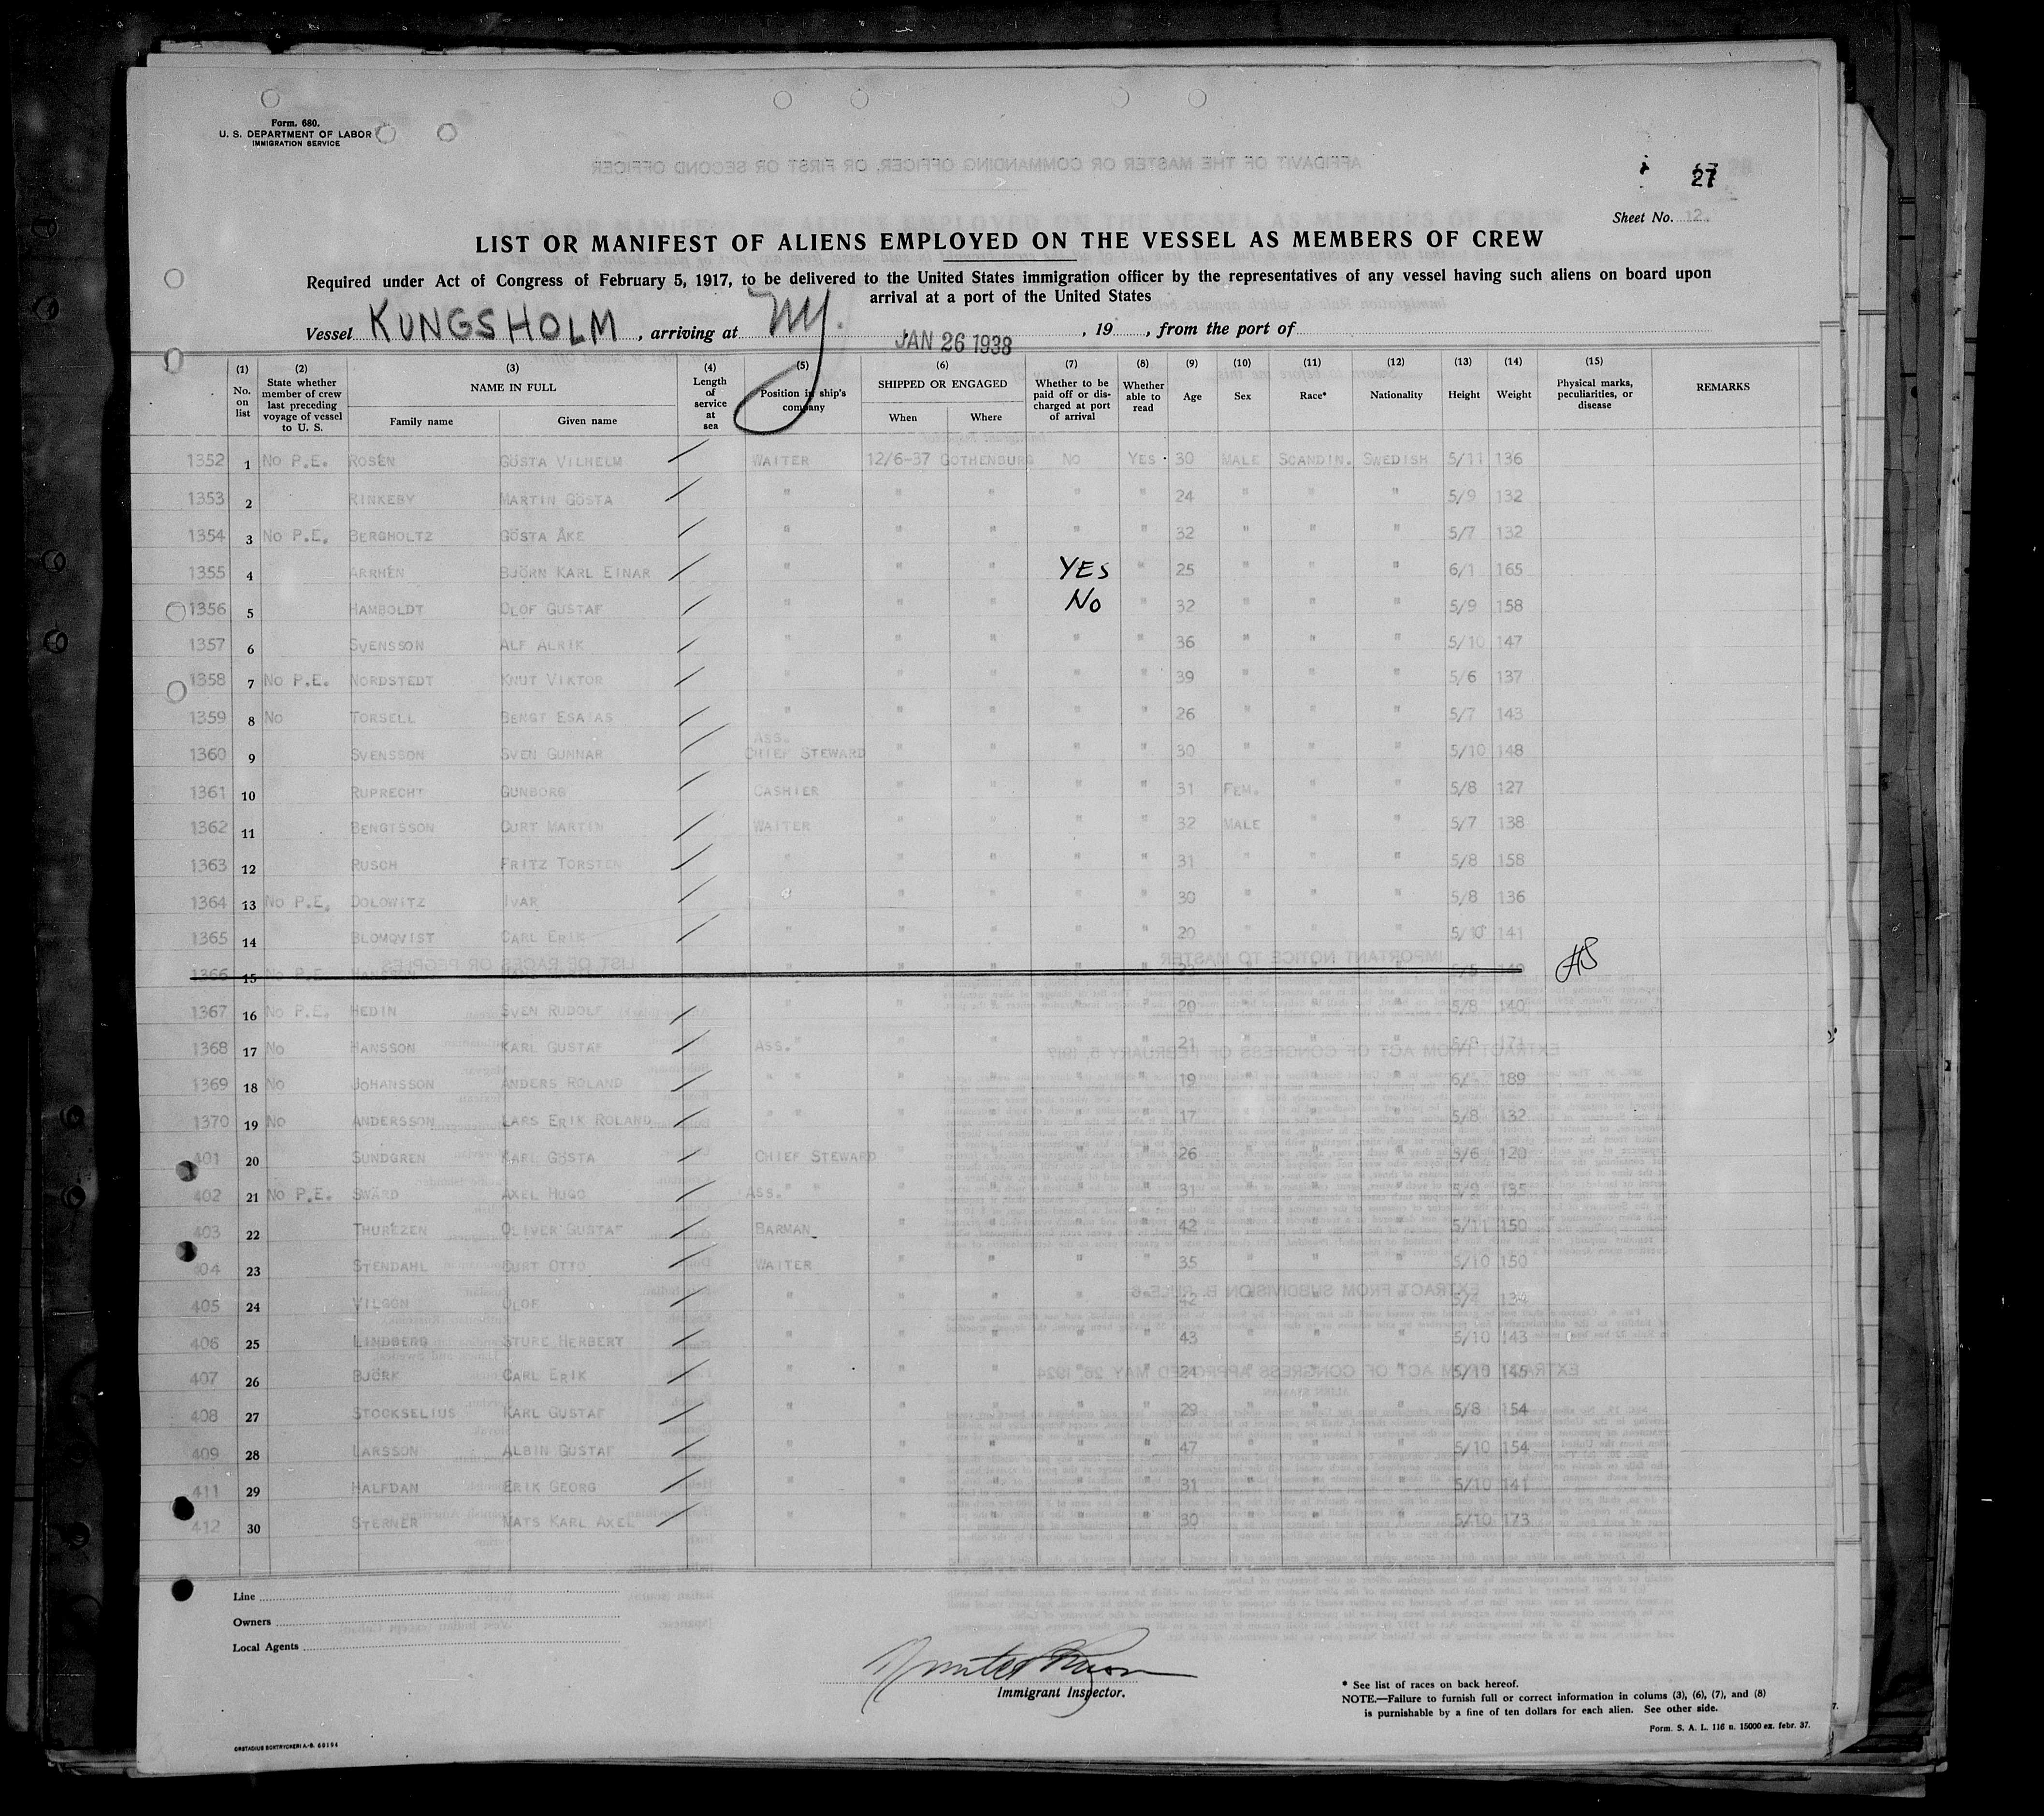 Form. 680.
U. S. DEPARTMENT OF LABOR
IMMIGRATION SERVICE
27
Sheet No. 12.
LIST OR MANIFEST OF ALIENS EMPLOYED ON THE VESSEL AS MEMBERS OF CREW
Required under Act of Congress of February 5, 1917, to be delivered to the United States immigration officer by the representatives of any vessel having such aliens on board upon
arrival at a port of the United States
Vessel KUNGSHOLM, arriving at NY. JAN 26 1938, 19, from the port of
(1) No. on list (2) State whether member of crew last preceding voyage of vessel to U. S. (3) NAME IN FULL Family name Given name (4) Length of service at sea (5) Position in ship's company (6) SHIPPED OR ENGAGED When Where (7) Whether to be paid off or discharged at port of arrival (8) Whether able to read (9) Age (10) Sex (11) Race* (12) Nationality (13) Height (14) Weight (15) Physical marks, peculiarities, or disease REMARKS
1352 1 No P.E. ROSÉN GÖSTA VILHELM WAITER 12/6-37 GOTHENBURG NO YES 30 MALE SCANDIN. SWEDISH 5/11 136
1353 2 RINKEBY MARTIN GÖSTA " " " " " 24 " " " 5/9 132
1354 3 No P.E. BERGHOLTZ GÖSTA ÅKE " " " " " 32 " " " 5/7 132
1355 4 ARRHÉN BJÖRN KARL EINAR " " " YES " 25 " " " 6/1 165
1356 5 HAMBOLDT OLOF GUSTAF " " " NO " 32 " " " 5/9 158
1357 6 SVENSSON ALF ALRIK " " " " " 36 " " " 5/10 147
1358 7 No P.E. NORDSTEDT KNUT VIKTOR " " " " " 39 " " " 5/6 137
1359 8 No TORSELL BENGT ESAIAS " " " " " 26 " " " 5/7 143
1360 9 SVENSSON SVEN GUNNAR ASS. CHIEF STEWARD " " " " 30 " " " 5/10 148
1361 10 RUPRECHT GUNBORG CASHIER " " " " 31 FEM. " " 5/8 127
1362 11 BENGTSSON CURT MARTIN WAITER " " " " 32 MALE " " 5/7 138
1363 12 RUSCH FRITZ TORSTEN " " " " " 31 " " " 5/8 158
1364 13 No P.E. DOLOWITZ IVAR " " " " 30 " " " 5/8 136
1365 14 BLOMQVIST CARL ERIK " " " " " 20 " " " 5/10 141
1366 15 No P.E. HANSSON
1367 16 No P.E. HEDIN SVEN RUDOLF " " " " " 20 " " " 5/8 140
1368 17 No HANSSON KARL GUSTAF ASS. " " " " " 21 " " " 171
1369 18 No JOHANSSON ANDERS ROLAND " " " " " " 19 " " " 6/- 189
1370 19 No ANDERSSON LARS ERIK ROLAND " " " " " " 17 " " " 5/8 132
401 20 SUNDGREN KARL GÖSTA CHIEF STEWARD " " " " 26 " " " 5/6 120
402 21 No P.E. SWÄRD AXEL HUGO ASS. " " " " " " 31 " " " 5/9 135
403 22 THUREZEN OLIVER GUSTAF BARMAN " " " " 42 " " " 5/11 150
404 23 STENDAHL CURT OTTO WAITER " " " " 35 " " " 5/10 150
405 24 VILGON OLOF " " " " " 42 " " " 5/4 134
406 25 LINDBERG STURE HERBERT " " " " " 43 " " " 5/10 143
407 26 BJÖRK CARL ERIK " " " " " 24 " " " 5/10 145
408 27 STOCKSELIUS KARL GUSTAF " " " " " 29 " " " 5/8 154
409 28 LARSSON ALBIN GUSTAF " " " " " 47 " " " 5/10 154
411 29 HALFDAN ERIK GEORG " " " " " 31 " " " 5/10 141
412 30 STERNER MATS KARL AXEL " " " " " 30 " " " 5/10 173
Line
Owners
Local Agents
Immigrant Inspector.
* See list of races on back hereof.
NOTE.—Failure to furnish full or correct information in colums (3), (6), (7), and (8)
is purnishable by a fine of ten dollars for each alien. See other side.
Form. S. A. L. 116 n. 15000 ex. febr. 37.